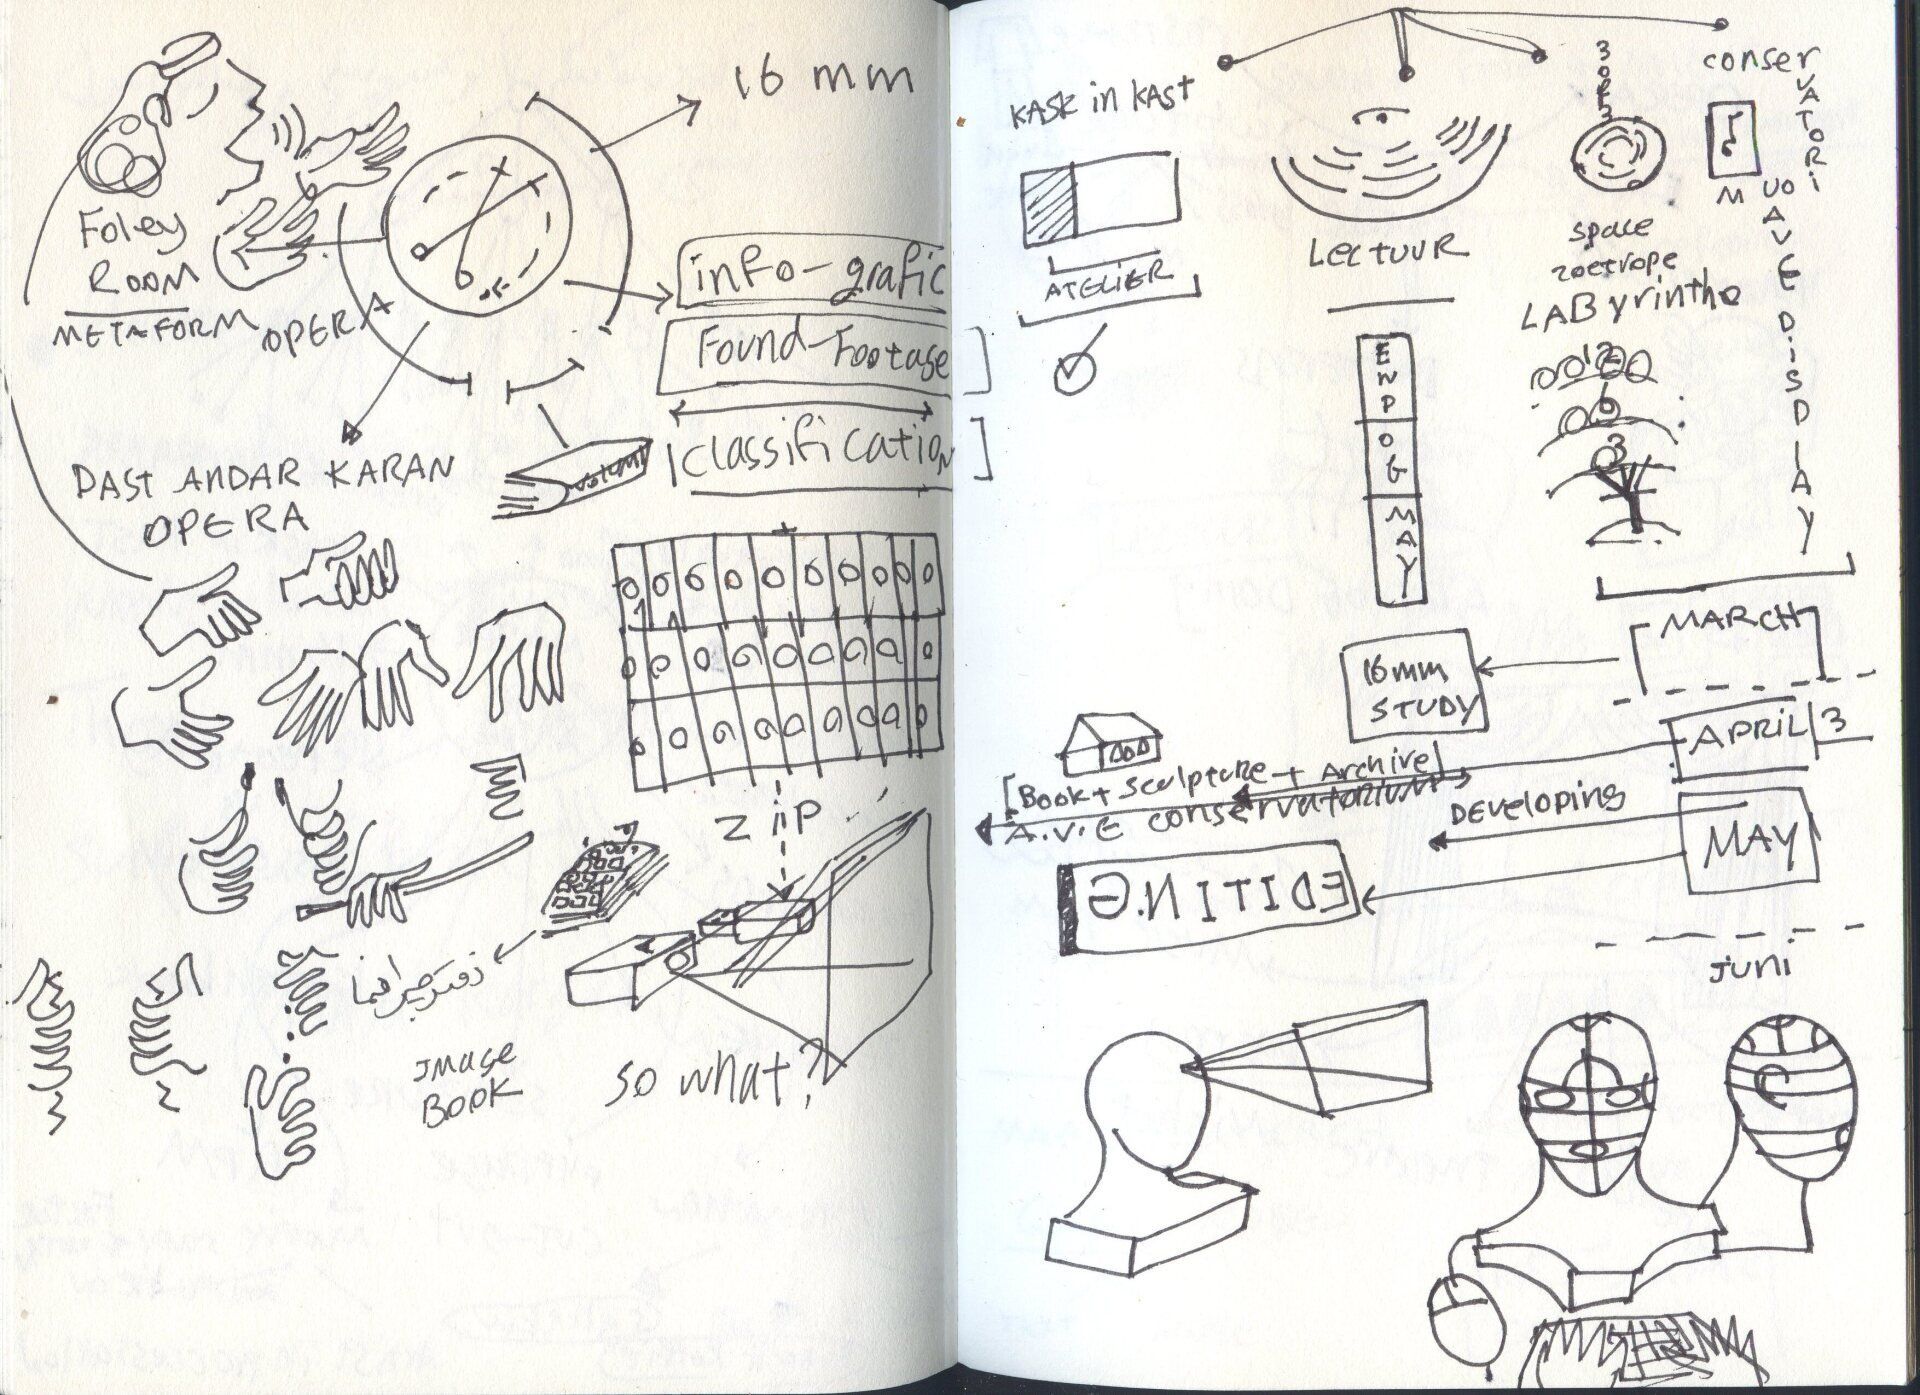 16 mm
Foley
ROOM
METAFORM OPERA
info-grafic
Found-Footage
classification
volumi
DAST ANDAR KARAN
OPERA
ZIP
IMAGE
BOOK
so what?
KASK in KAST
ATELIER
LECTUUR
END
OG
MAY
space
zoetrope
LAByrinthe
conser
VATORi
M
UOAVVE DiSDIAY
MARCH
16mm
STUDY
APRIL 3
[Book + Sculpture + Archive]
A.V.E conservatorium
DEVELOPING
MAY
EDITING
Juni